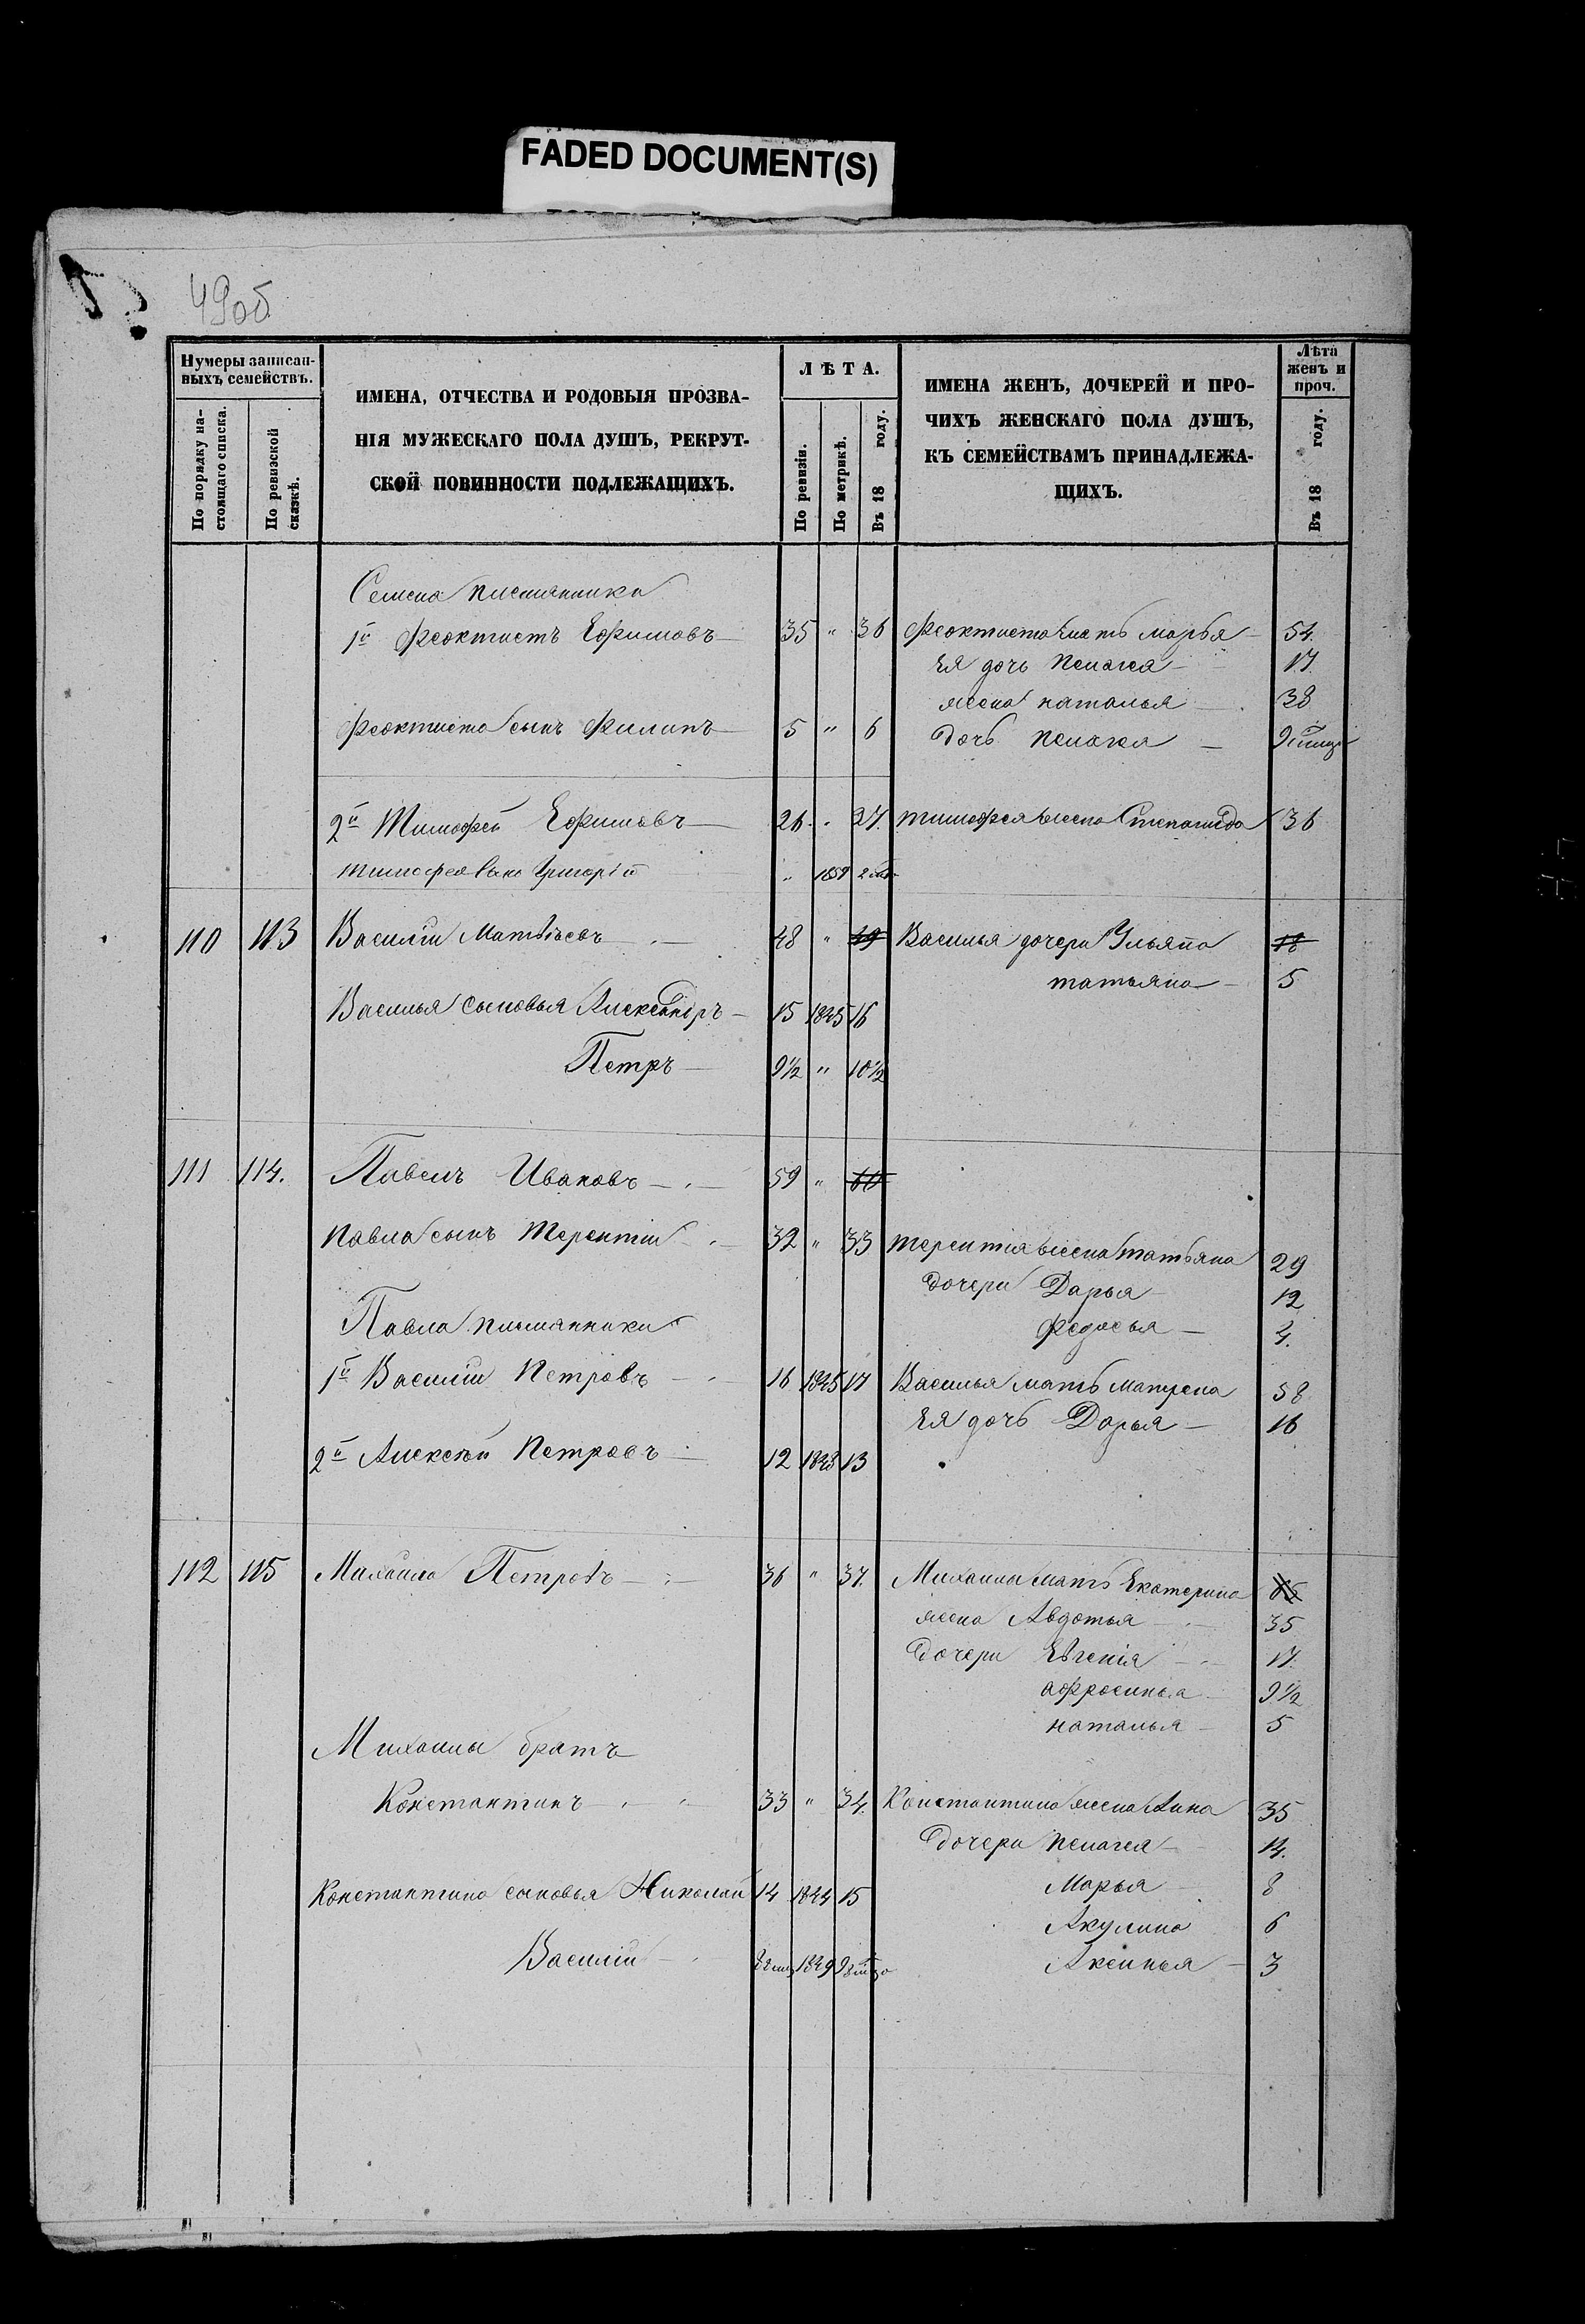 FADED DOCUMENT(S)
49об
Нумеры записан-
ныхъ семействъ.
По порядку на-
стоящаго списка.
По ревизской
сказкѣ.
ИМЕНА, ОТЧЕСТВА И РОДОВЫЯ ПРОЗВА-
НІЯ МУЖЕСКАГО ПОЛА ДУШЪ, РЕКРУТ-
СКОЙ ПОВИННОСТИ ПОДЛЕЖАЩИХЪ.
ЛѢТА.
По ревизіи.
По метрикѣ.
Въ 18 году.
ИМЕНА ЖЕНЪ, ДОЧЕРЕЙ И ПРО-
ЧИХЪ ЖЕНСКАГО ПОЛА ДУШЪ,
КЪ СЕМЕЙСТВАМЪ ПРИНАДЛЕЖА-
ЩИХЪ.
Лѣта
женъ и
проч.
Въ 18 году.
Семена племянники
1й Феоктистъ Ефимовъ 35 " 36 Феоктиста мать Марья 54.
Ея дочь Пелагея 17.
жена Наталья 38
Феоктиста сынъ Филипъ 5 " 6 Дочь Пелагея
2й Тимофей Ефимовъ 26. " 27. Тимофея жена Степанида 36
Тимофея сынъ Григорій " 1859
110 113 Василій Матвѣевъ 48 " 49 Василья дочери Ульяна 18
Татьяна 5
Василья сыновья Александръ 15 1845 16
Петръ 9½ " 10½
111 114. Павелъ Ивановъ 59 " 60
Павла сынъ Терентій 32 " 33 Терентія жена Татьяна 29
Дочери Дарья 12
Павла племянники Федосья 4.
1й Василій Петровъ 16 1845 17 Василья мать Матрена 58
Ея дочь Дарья 16
2й Алексѣй Петровъ 12 1848 13
112 115 Михаила Петровъ 36 " 37. Михаила мать Екатерина
жена Авдотья 35
Дочери Евгенія 17.
Афросинья 9½
Наталья 5
Михаилы братъ
Константинъ 33 " 34. Константина жена Анна 35
Дочери Пелагея 14.
Константина сыновья Николай 14 1844 15 Марья 8
Акулина 6
Василій 1849 Аксинья 3